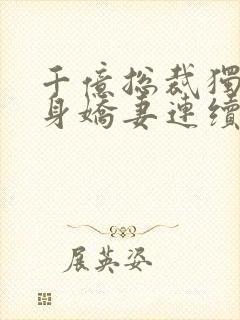 千億總裁獨
身嬌妻連續
展英姿